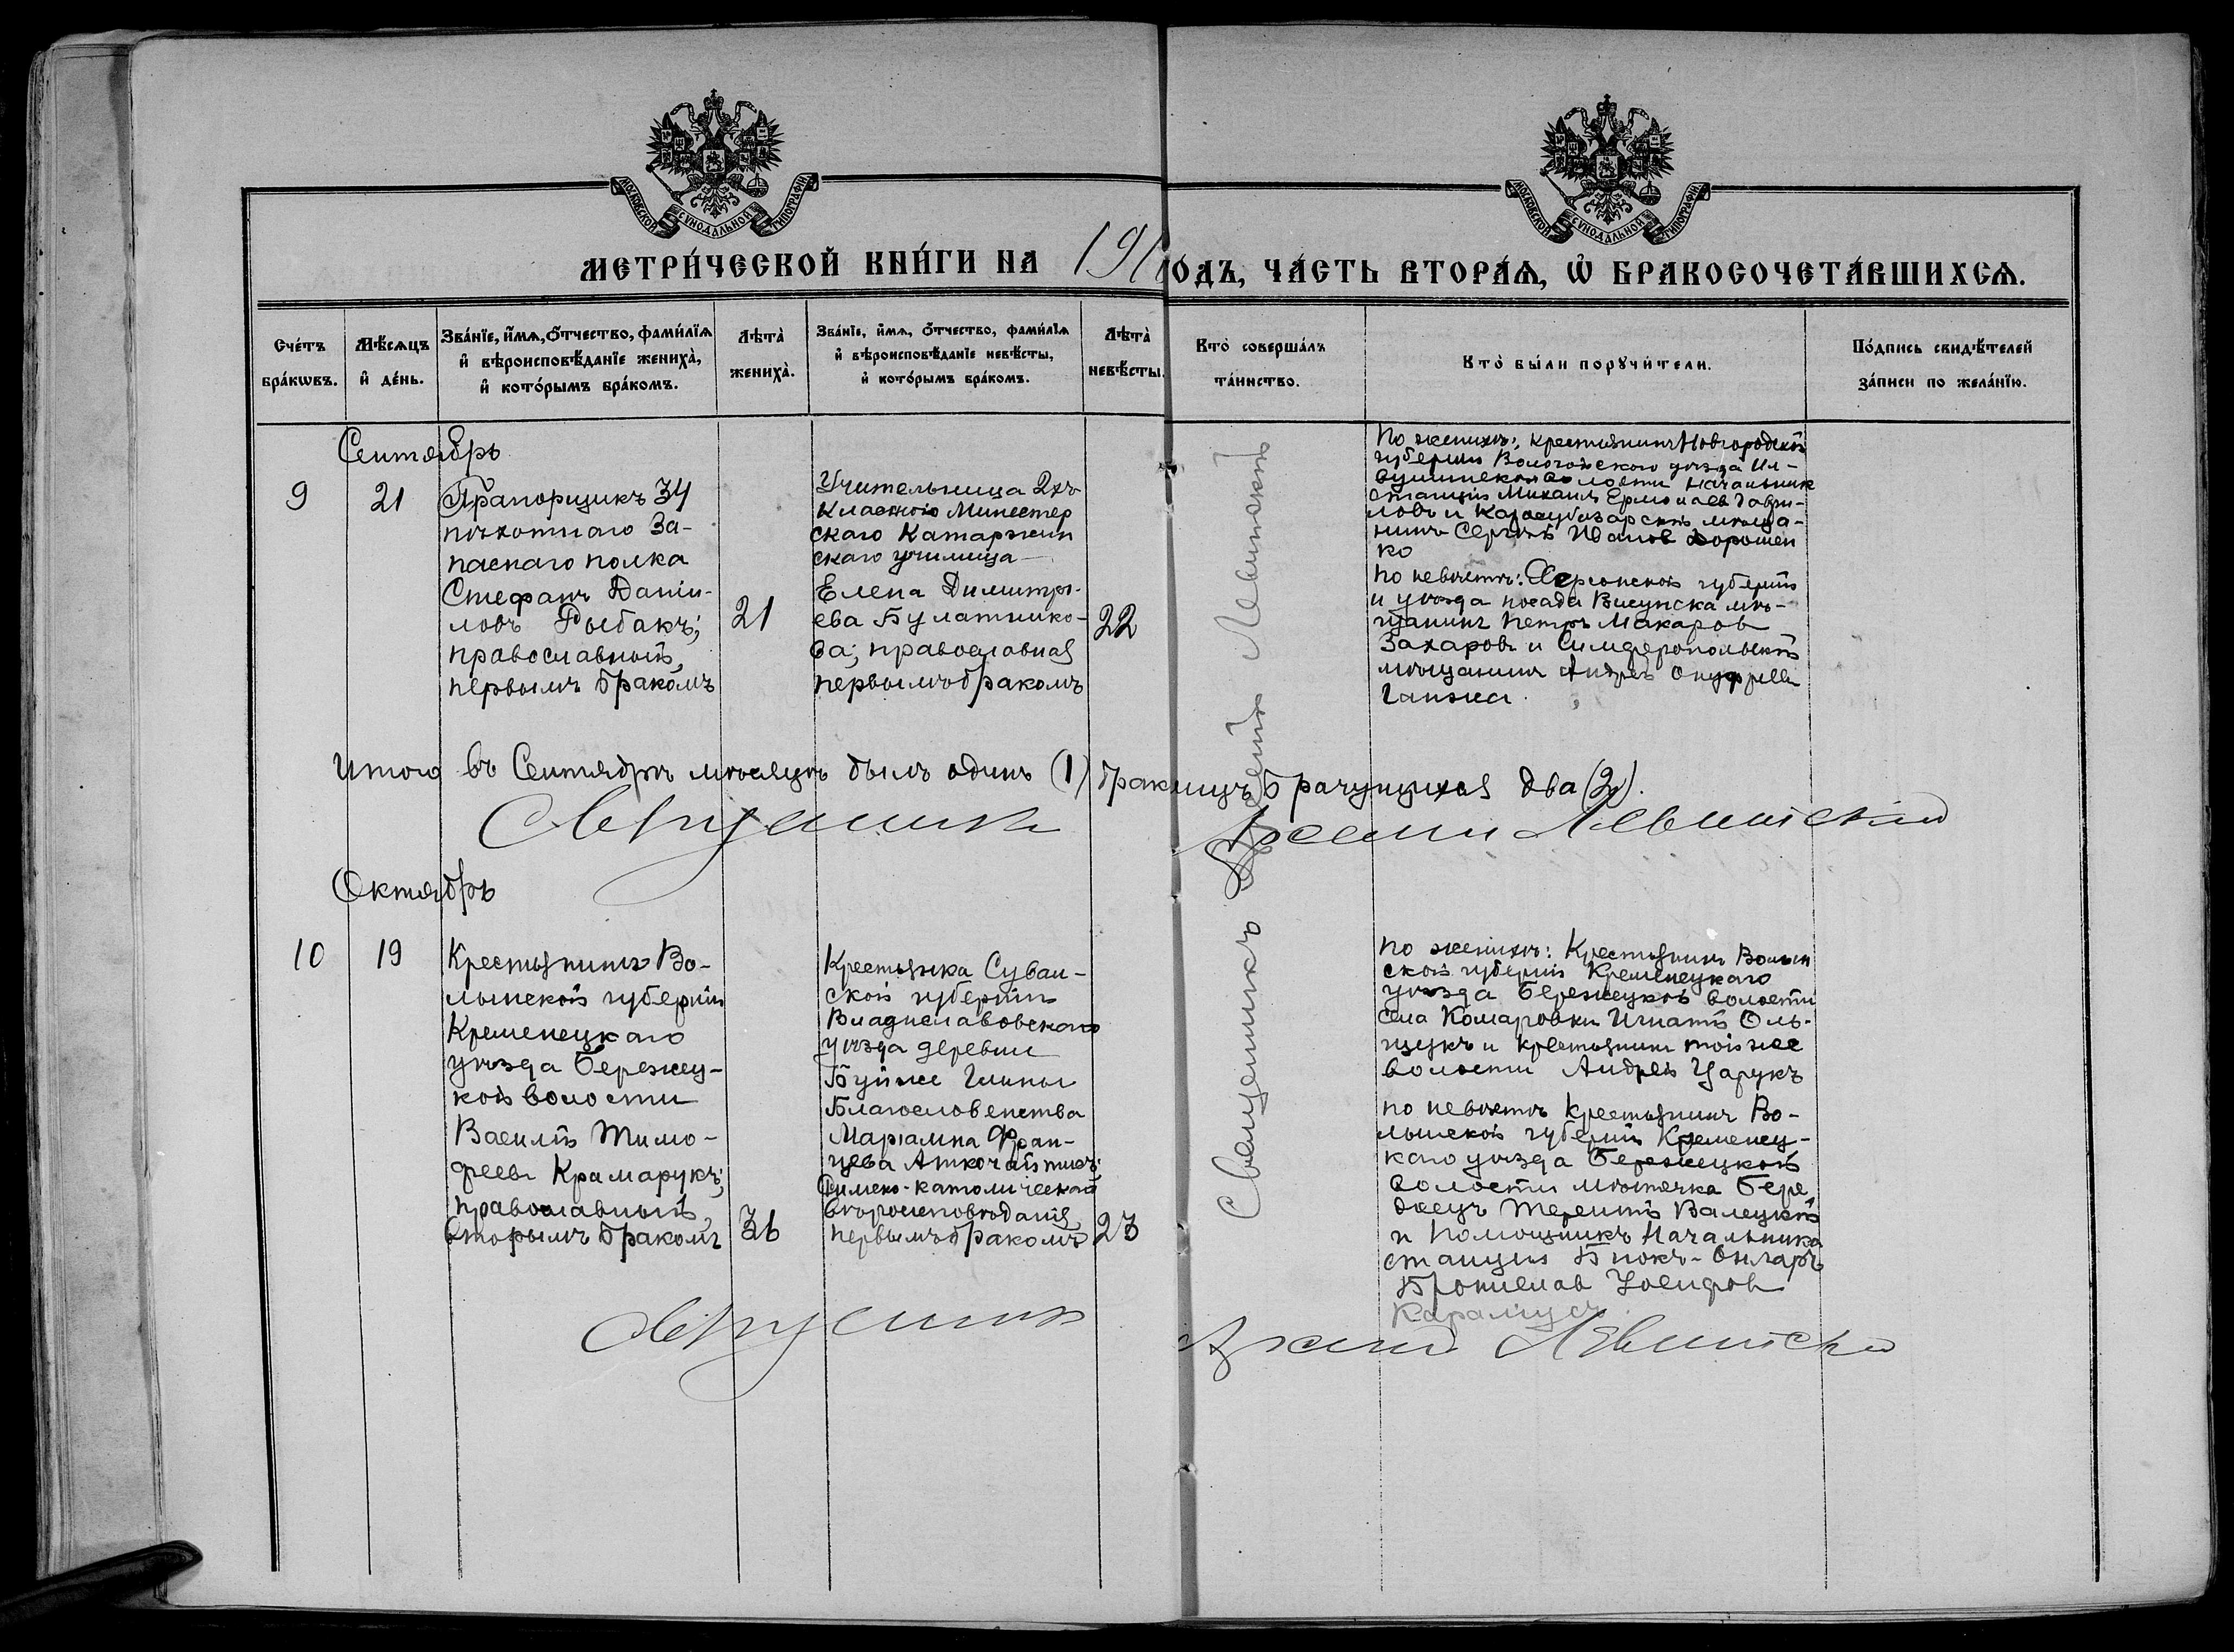 МОСКОВСКОЙ СУНОДАЛЬНОЙ ТИПОГРАФІИ
МОСКОВСКОЙ СУНОДАЛЬНОЙ ТИПОГРАФІИ
МЕТРИ́ЧЕСКОЙ КНИ́ГИ НА 191 ОДЪ, ЧА́СТЬ ВТОРА́Ѧ, Ѡ҆ БРАКОСОЧЕТА́ВШИХСѦ.
Сче́тъ бра́кѡвъ.
Мѣ́сѧцъ и҆ де́нь.
Зва́нїе, и҆́мѧ, ѻ҆́тчество, фами́лїѧ
и҆ вѣроисповѣ́данїе жениха̀,
и҆ кото́рымъ бра́комъ.
Лѣта̀ жениха̀.
Зва́нїе, и҆́мѧ, ѻ҆́тчество, фами́лїѧ
и҆ вѣроисповѣ́данїе невѣ́сты,
и҆ кото́рымъ бра́комъ.
Лѣта̀ невѣ́сты.
Кто̀ соверша́лъ та́инство.
Кто̀ бы́ли порꙋчи́тели.
По́дпись свидѣ́телей
за́писи по жела́нїю.
Сентябрь
9
21
Прапорщикъ 34
пѣхотнаго За-
паснаго полка
Стефанъ Даніи-
ловъ Рыбакъ;
православный,
первымъ бракомъ
21
Учительница 2хъ
класснаго Министер
скаго Катаржин
скаго училища
Елена Димитрі-
ева Булатнико-
ва; православная
первымъ бракомъ
22
Священникъ Арсеній Левитскій
По женихѣ: крестьянинъ Новгородской
губерніи Вологодскаго уѣзда
волости Начальник
станціи Михаилъ Ермолаев Гаври-
ловъ и Карасубазарскій мѣща-
нинъ Сергѣй Иванов Дорошен
ко
По невѣстѣ: Херсонской губерніи
и уѣзда посада Висунска мѣ-
щанинъ Петръ Макаров
Захаровъ и Симферопольскій
мѣщанинъ Андрей Онуфріев
Ганжа.
Итого въ Сентябрѣ мѣсяцѣ былъ одинъ (1) бракъ лицъ брачущихся два (2).
Арсеній Левитскій
Октябрь
10
19
Крестьянинъ Во-
лынской губерніи
Кременецкаго
уѣзда Бережец-
кой волости
Василій Тимо-
феевъ Крамарукъ;
православный,
вторымъ бракомъ
36
Крестьянка Сувал-
ской губерніи
Владиславовскаго
уѣзда деревни
Гмины
Благословенства
Маріанна Фран-
цева Аткочайтисъ;
Римско-католическаго
вѣроисповѣданія,
первымъ бракомъ
23
По женихѣ: Крестьянинъ Волын
ской губерніи Кременецкаго
уѣзда Бережецкой волости
села Комаровки Игнатій Оль-
щукъ и крестьянинъ той же
волости Андрей Царукъ
по невѣстѣ крестьянинъ Во-
лынской губерніи Кременец-
каго уѣзда Бережецкой
волости мѣстечка Бере
жецъ Терентій Валецкій
и Помощникъ Начальника
станціи Біюкъ-Онларъ
Брониславъ Іосифов
Карамусъ.
Арсеній Левитскій